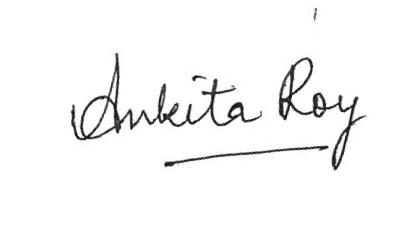 Ankita Roy